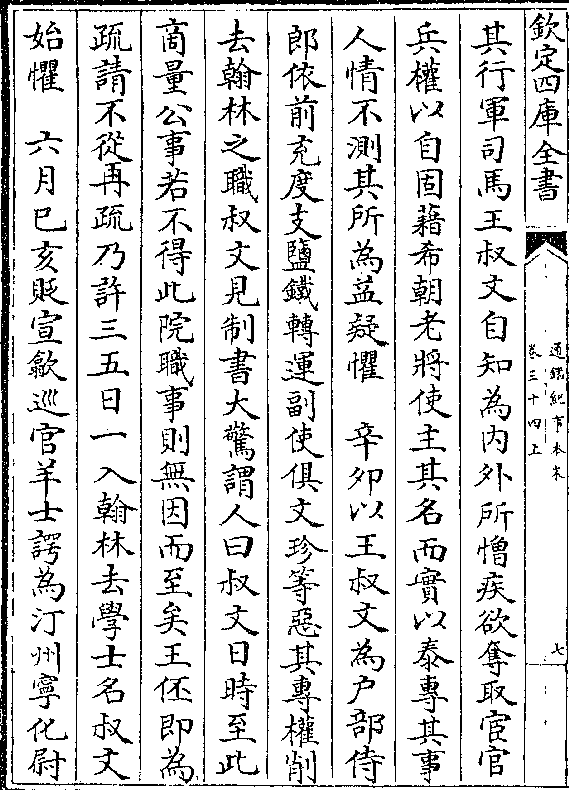 欽定四庫全書
通鑑紀事本末
卷三十四上
七
其行軍司馬王叔文自知為内外所憎疾欲奪取宦官
兵權以自固藉希朝老將使主其名而實以泰專其事
人情不測其所為益疑懼　辛夘以王叔文為户部侍
郎依前充度支鹽鐵轉運副使俱文珍等惡其專權削
去翰林之職叔文見制書大驚謂人曰叔文日時至此
商量公事若不得此院職事則無因而至矣王伾即為
疏請不從再疏乃許三五日一入翰林去學士名叔文
始懼　六月已亥貶宣歙巡官羊士諤為汀州寧化尉